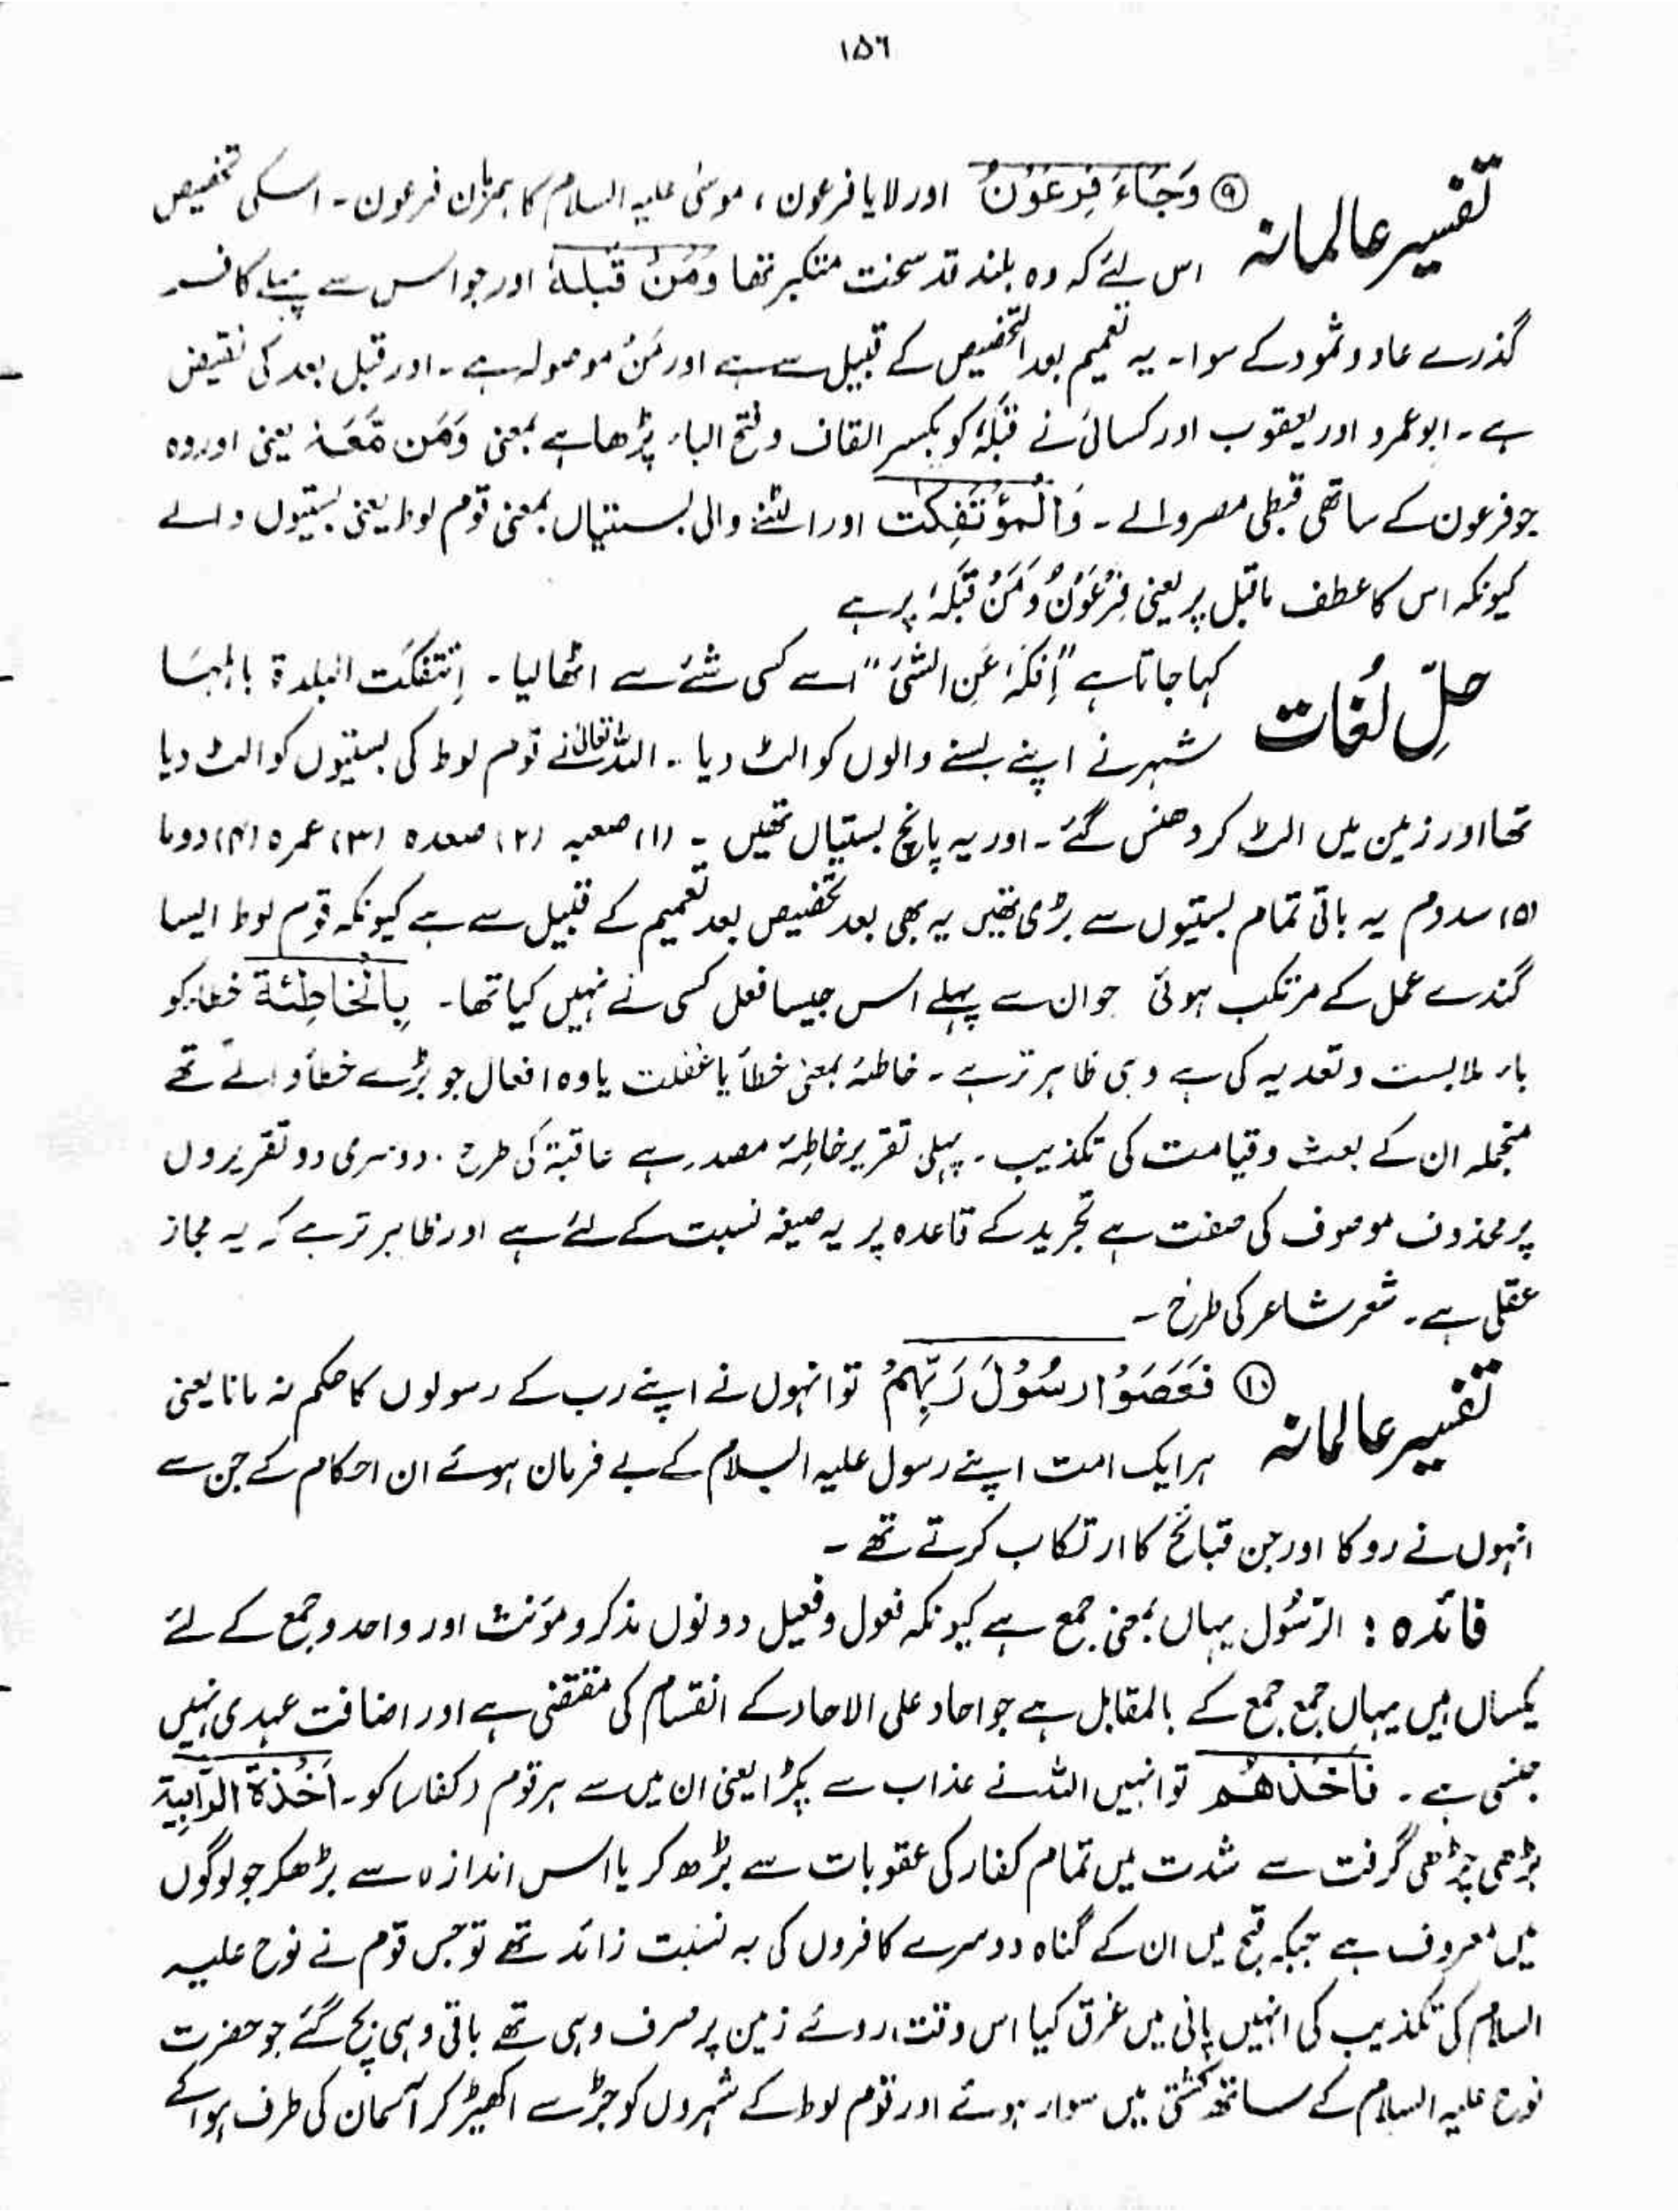 ۱۵۶
تفسیر عالمانہ ⑨ وَجَآءَ فِرْعَوْنُ اور لایا فرعون ، موسیٰ علیہ السلام کا ہمزمان فرعون۔ اسکی تخصیص
اس لئے کہ وہ بلند قد سخت متکبر تھا وَمَنْ قَبْلَهٗ اور جو اس سے پہلے کافر
گذرے عاد و ثمود کے سوا۔ یہ تعمیم بعد التخصیص کے قبیل سے ہے اور مَنْ موصولہ ہے۔ اور قبل بعد کی نقیض
ہے۔ ابو عمرو اور یعقوب اور کسائی نے قِبَلَهٗ کو بکسر القاف و فتح الباء پڑھا ہے بمعنی وَمَن مَّعَهٗ یعنی اور وہ
جو فرعون کے ساتھی قبطی مصر والے ۔ وَالْمُؤْتَفِكٰت اور الٹنے والی بستیاں بمعنی قوم لوط یعنی بستیوں والے
کیونکہ اس کا عطف ماقبل پر یعنی فِرْعَوْنُ وَمَنْ قَبْلَهٗ پر ہے
حلِّ لُغات کہا جاتا ہے "اِفکَہٗ عَنِ الشَّیْ" اسے کسی شئے سے اٹھا لیا ۔ اِئتفکَت البلدۃ باہلہا
شہر نے اپنے بسنے والوں کو الٹ دیا ۔ اللہ تعالیٰ نے قوم لوط کی بستیوں کو الٹ دیا
تھا اور زمین میں الٹ کر دھنس گئے۔ اور یہ پانچ بستیاں تھیں ۔ (۱) صعبہ (۲) صعدہ (۳) عمرہ (۴) دوما
(۵) سدوم یہ باقی تمام بستیوں سے بڑی تھیں یہ بھی بعد تخصیص بعد تعمیم کے قبیل سے ہے کیونکہ قوم لوط ایسا
گندے عمل کے مرتکب ہوئی جو ان سے پہلے اس جیسا فعل کسی نے نہیں کیا تھا۔ بِالْخَاطِئَة خطاء کو
باء ملابست و تعدیہ کی ہے وہی ظاہر تر ہے ۔ خاطئہ بمعنی خطأ یا غفلت یا وہ افعال جو بڑے خطأ والے تھے
منجملہ ان کے بعث و قیامت کی تکذیب ۔ پہلی تقریر خاطِئہ مصدر ہے عاقبۃ کی طرح ۔ دوسری دو تقریروں
پر محذوف موصوف کی صفت ہے تجرید کے قاعدہ پر یہ صیغہ نسبت کے لئے ہے اور ظاہر تر ہے کہ یہ مجاز
عقلی ہے۔ شعر شاعر کی طرح ۔
تفسیر عالمانہ ⑩ فَعَصَوْا رَسُوْلَ رَبِّهِمْ تو انہوں نے اپنے رب کے رسولوں کا حکم نہ مانا یعنی
ہر ایک امت اپنے رسول علیہ السلام کے بے فرمان ہوئے ان احکام کے جن سے
انہوں نے روکا اور جن قبائح کا ارتکاب کرتے تھے ۔
فائدہ : الرَّسُول یہاں بمعنی جمع ہے کیونکہ فعول و فعیل دونوں مذکر و مؤنث اور واحد و جمع کے لئے
یکساں ہیں یہاں جمع جمع کے بالمقابل ہے جو احاد علی الاحاد کے انقسام کی مقتضی ہے اور اضافت عہدی نہیں
جنسی ہے ۔ فَاَخَذَهُمْ تو انہیں اللہ نے عذاب سے پکڑا یعنی ان میں سے ہر قوم (کفار) کو ۔ اَخْذَةً الرَّابِیَة
بڑھی چڑھی گرفت سے شدت میں تمام کفار کی عقوبات سے بڑھ کر یا اس اندازہ سے بڑھکر جو لوگوں
میں معروف ہے جبکہ قبح میں ان کے گناہ دوسرے کافروں کی بہ نسبت زائد تھے تو جس قوم نے نوح علیہ
السلام کی تکذیب کی انہیں پانی میں غرق کیا اس وقت روئے زمین پر صرف وہی تھے باقی وہی بچ گئے جو حضرت
نوح علیہ السلام کے ساتھ کشتی میں سوار ہوئے اور قوم لوط کے شہروں کو جڑ سے اکھیڑ کر آسمان کی طرف ہوا کے